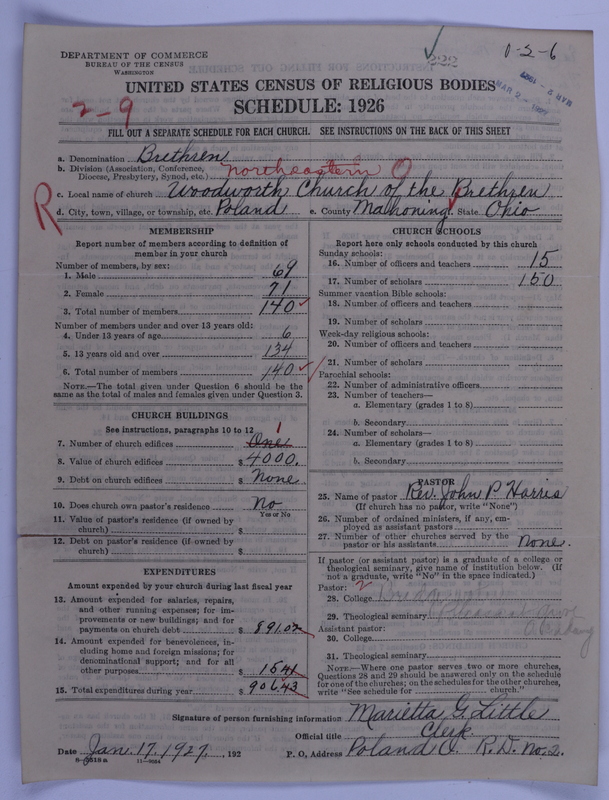 DEPARTMENT OF COMMERCE
BUREAU OF THE CENSUS
WASHINGTON
222
0-2-6
MAR 2
UNITED STATES CENSUS OF RELIGIOUS BODIES
SCHEDULE: 1926
2-9
FILL OUT A SEPARATE SCHEDULE FOR EACH CHURCH. SEE INSTRUCTIONS ON THE BACK OF THIS SHEET
a. Denomination Brethren
b. Division (Association, Conference, Diocese, Presbytery, Synod, etc.) northeastern O
c. Local name of church Woodworth Church of the Brethren
R
d. City, town, village, or township, etc. Poland e. County Mahoning State Ohio
MEMBERSHIP
Report number of members according to definition of
member in your church
Number of members, by sex:
1. Male 69
2. Female 71
3. Total number of members 140
Number of members under and over 13 years old:
4. Under 13 years of age 6
5. 13 years old and over 134
6. Total number of members 140
NOTE.—The total given under Question 6 should be the
same as the total of males and females given under Question 3.
CHURCH BUILDINGS
See instructions, paragraphs 10 to 12
7. Number of church edifices One 1
8. Value of church edifices $ 4000.
9. Debt on church edifices $ None
10. Does church own pastor's residence No
Yes or No
11. Value of pastor's residence (if owned by
church) $
12. Debt on pastor's residence (if owned by
church) $
EXPENDITURES
Amount expended by your church during last fiscal year
13. Amount expended for salaries, repairs,
and other running expenses; for im-
provements or new buildings; and for
payments on church debt $ 891.02
14. Amount expended for benevolences, in-
cluding home and foreign missions; for
denominational support; and for all
other purposes $ 15.41
15. Total expenditures during year $ 906.43
CHURCH SCHOOLS
Report here only schools conducted by this church
Sunday schools:
16. Number of officers and teachers 15
17. Number of scholars 150
Summer vacation Bible schools:
18. Number of officers and teachers
19. Number of scholars
Week-day religious schools:
20. Number of officers and teachers
21. Number of scholars
Parochial schools:
22. Number of administrative officers
23. Number of teachers—
a. Elementary (grades 1 to 8)
b. Secondary
24. Number of scholars—
a. Elementary (grades 1 to 8)
b. Secondary
PASTOR
25. Name of pastor Rev. John P. Harris
(If church has no pastor, write "None")
26. Number of ordained ministers, if any, em-
ployed as assistant pastors
27. Number of other churches served by the
pastor or his assistants None.
If pastor (or assistant pastor) is a graduate of a college or
theological seminary, give name of institution below. (If
not a graduate, write "No" in the space indicated.)
Pastor: 2
28. College
29. Theological seminary
Assistant pastor:
30. College
31. Theological seminary
NOTE.—Where one pastor serves two or more churches,
Questions 28 and 29 should be answered only on the schedule
for one of the churches; on the schedules for the other churches,
write "See schedule for church."
Signature of person furnishing information Marietta G. Little
Official title Clerk
Date Jan. 17. 1927. 192
P. O. Address Poland O. R. D. No. 2.
8-3518a 11—9064